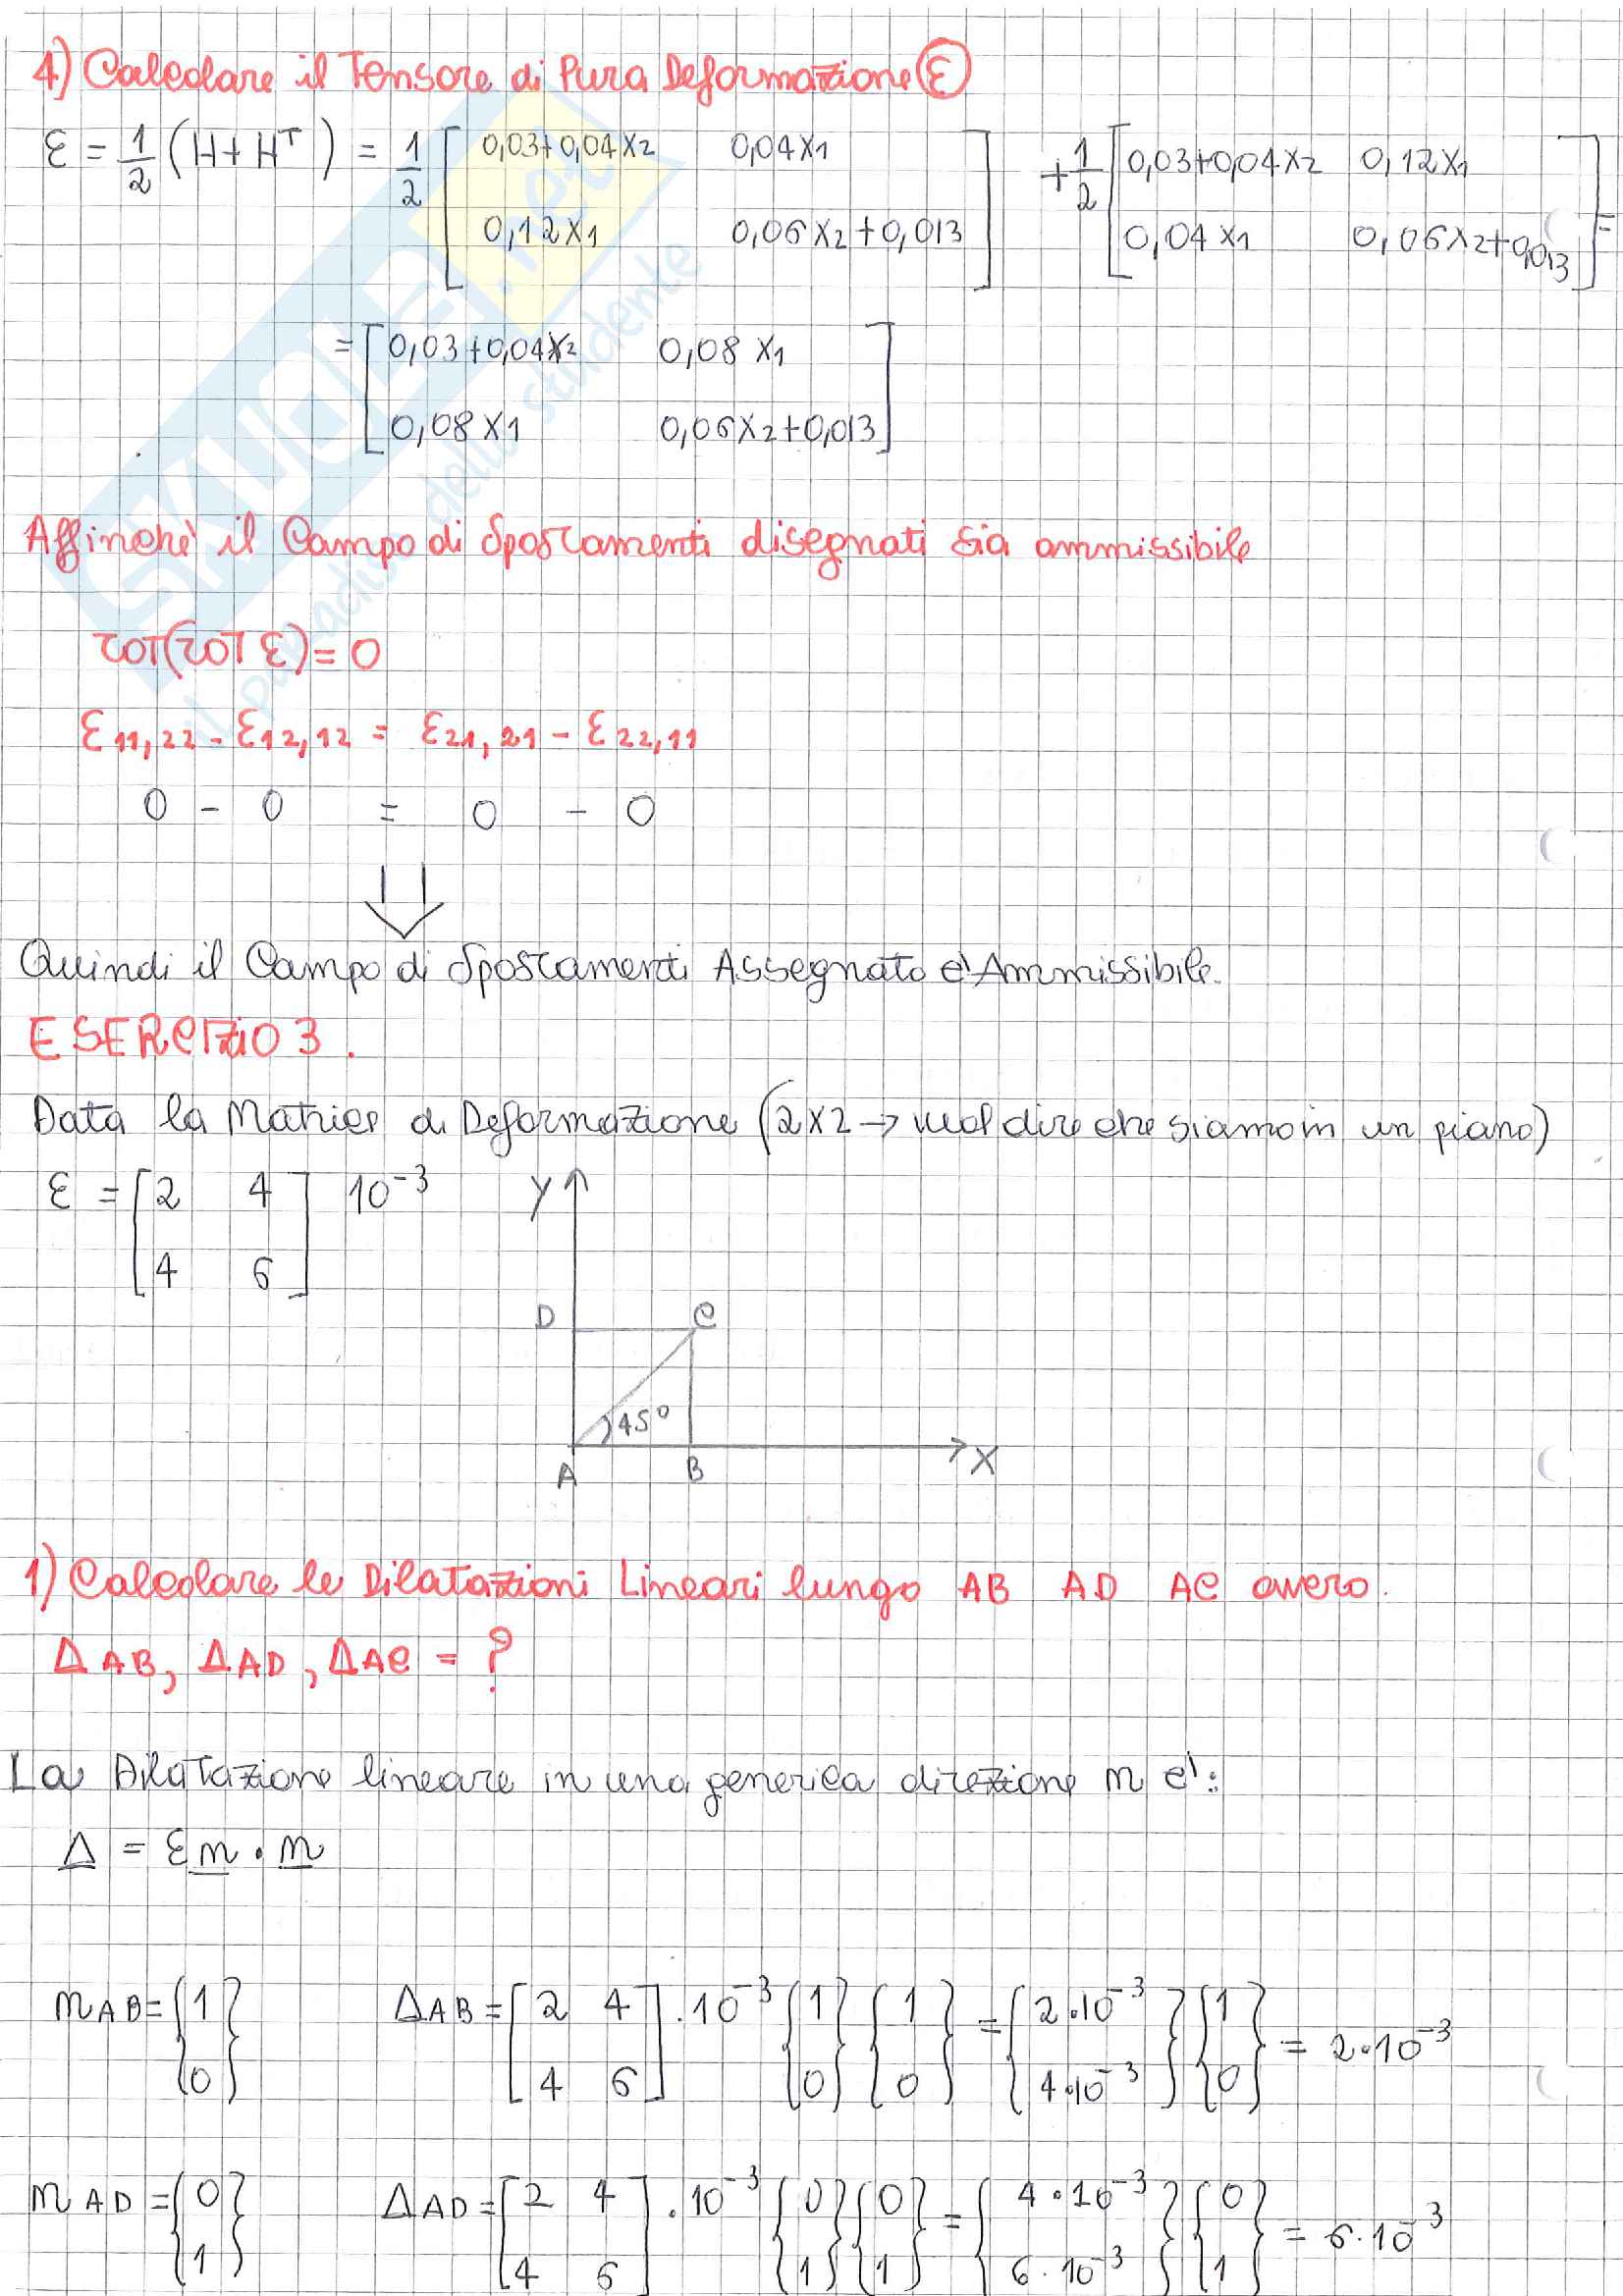 4) Calcolare il Tensore di Pura Deformazione (E)
E = 1/2 (H + H^T) = 1/2 [0,03+0,04x2 0,04x1; 0,12x1 0,06x2+0,013] + 1/2 [0,03+0,04x2 0,12x1; 0,04x1 0,06x2+0,013] =
= [0,03+0,04x2 0,08x1; 0,08x1 0,06x2+0,013]
Affinchè il Campo di Spostamenti disegnati sia ammissibile
rot(rot E) = 0
E11,22 - E12,12 = E21,21 - E22,11
0 - 0 = 0 - 0
⇓
Quindi il Campo di Spostamenti Assegnato e' Ammissibile.
ESERCIZIO 3.
Data la Matrice di Deformazione (2x2 → vuol dire che siamo in un piano)
E = [2 4; 4 6] 10^-3
Y
D C
45°
A B X
1) Calcolare le Dilatazioni Lineari lungo AB AD AC ovvero.
ΔAB, ΔAD, ΔAC = ?
La Dilatazione lineare in una generica direzione m e':
Δ = Em · m
mAB = {1; 0} ΔAB = [2 4; 4 6] · 10^-3 {1; 0} {1; 0} = {2·10^-3; 4·10^-3} {1; 0} = 2·10^-3
mAD = {0; 1} ΔAD = [2 4; 4 6] · 10^-3 {0; 1} {0; 1} = {4·10^-3; 6·10^-3} {0; 1} = 6·10^-3
SKUOLA.net
il paradiso dello studente